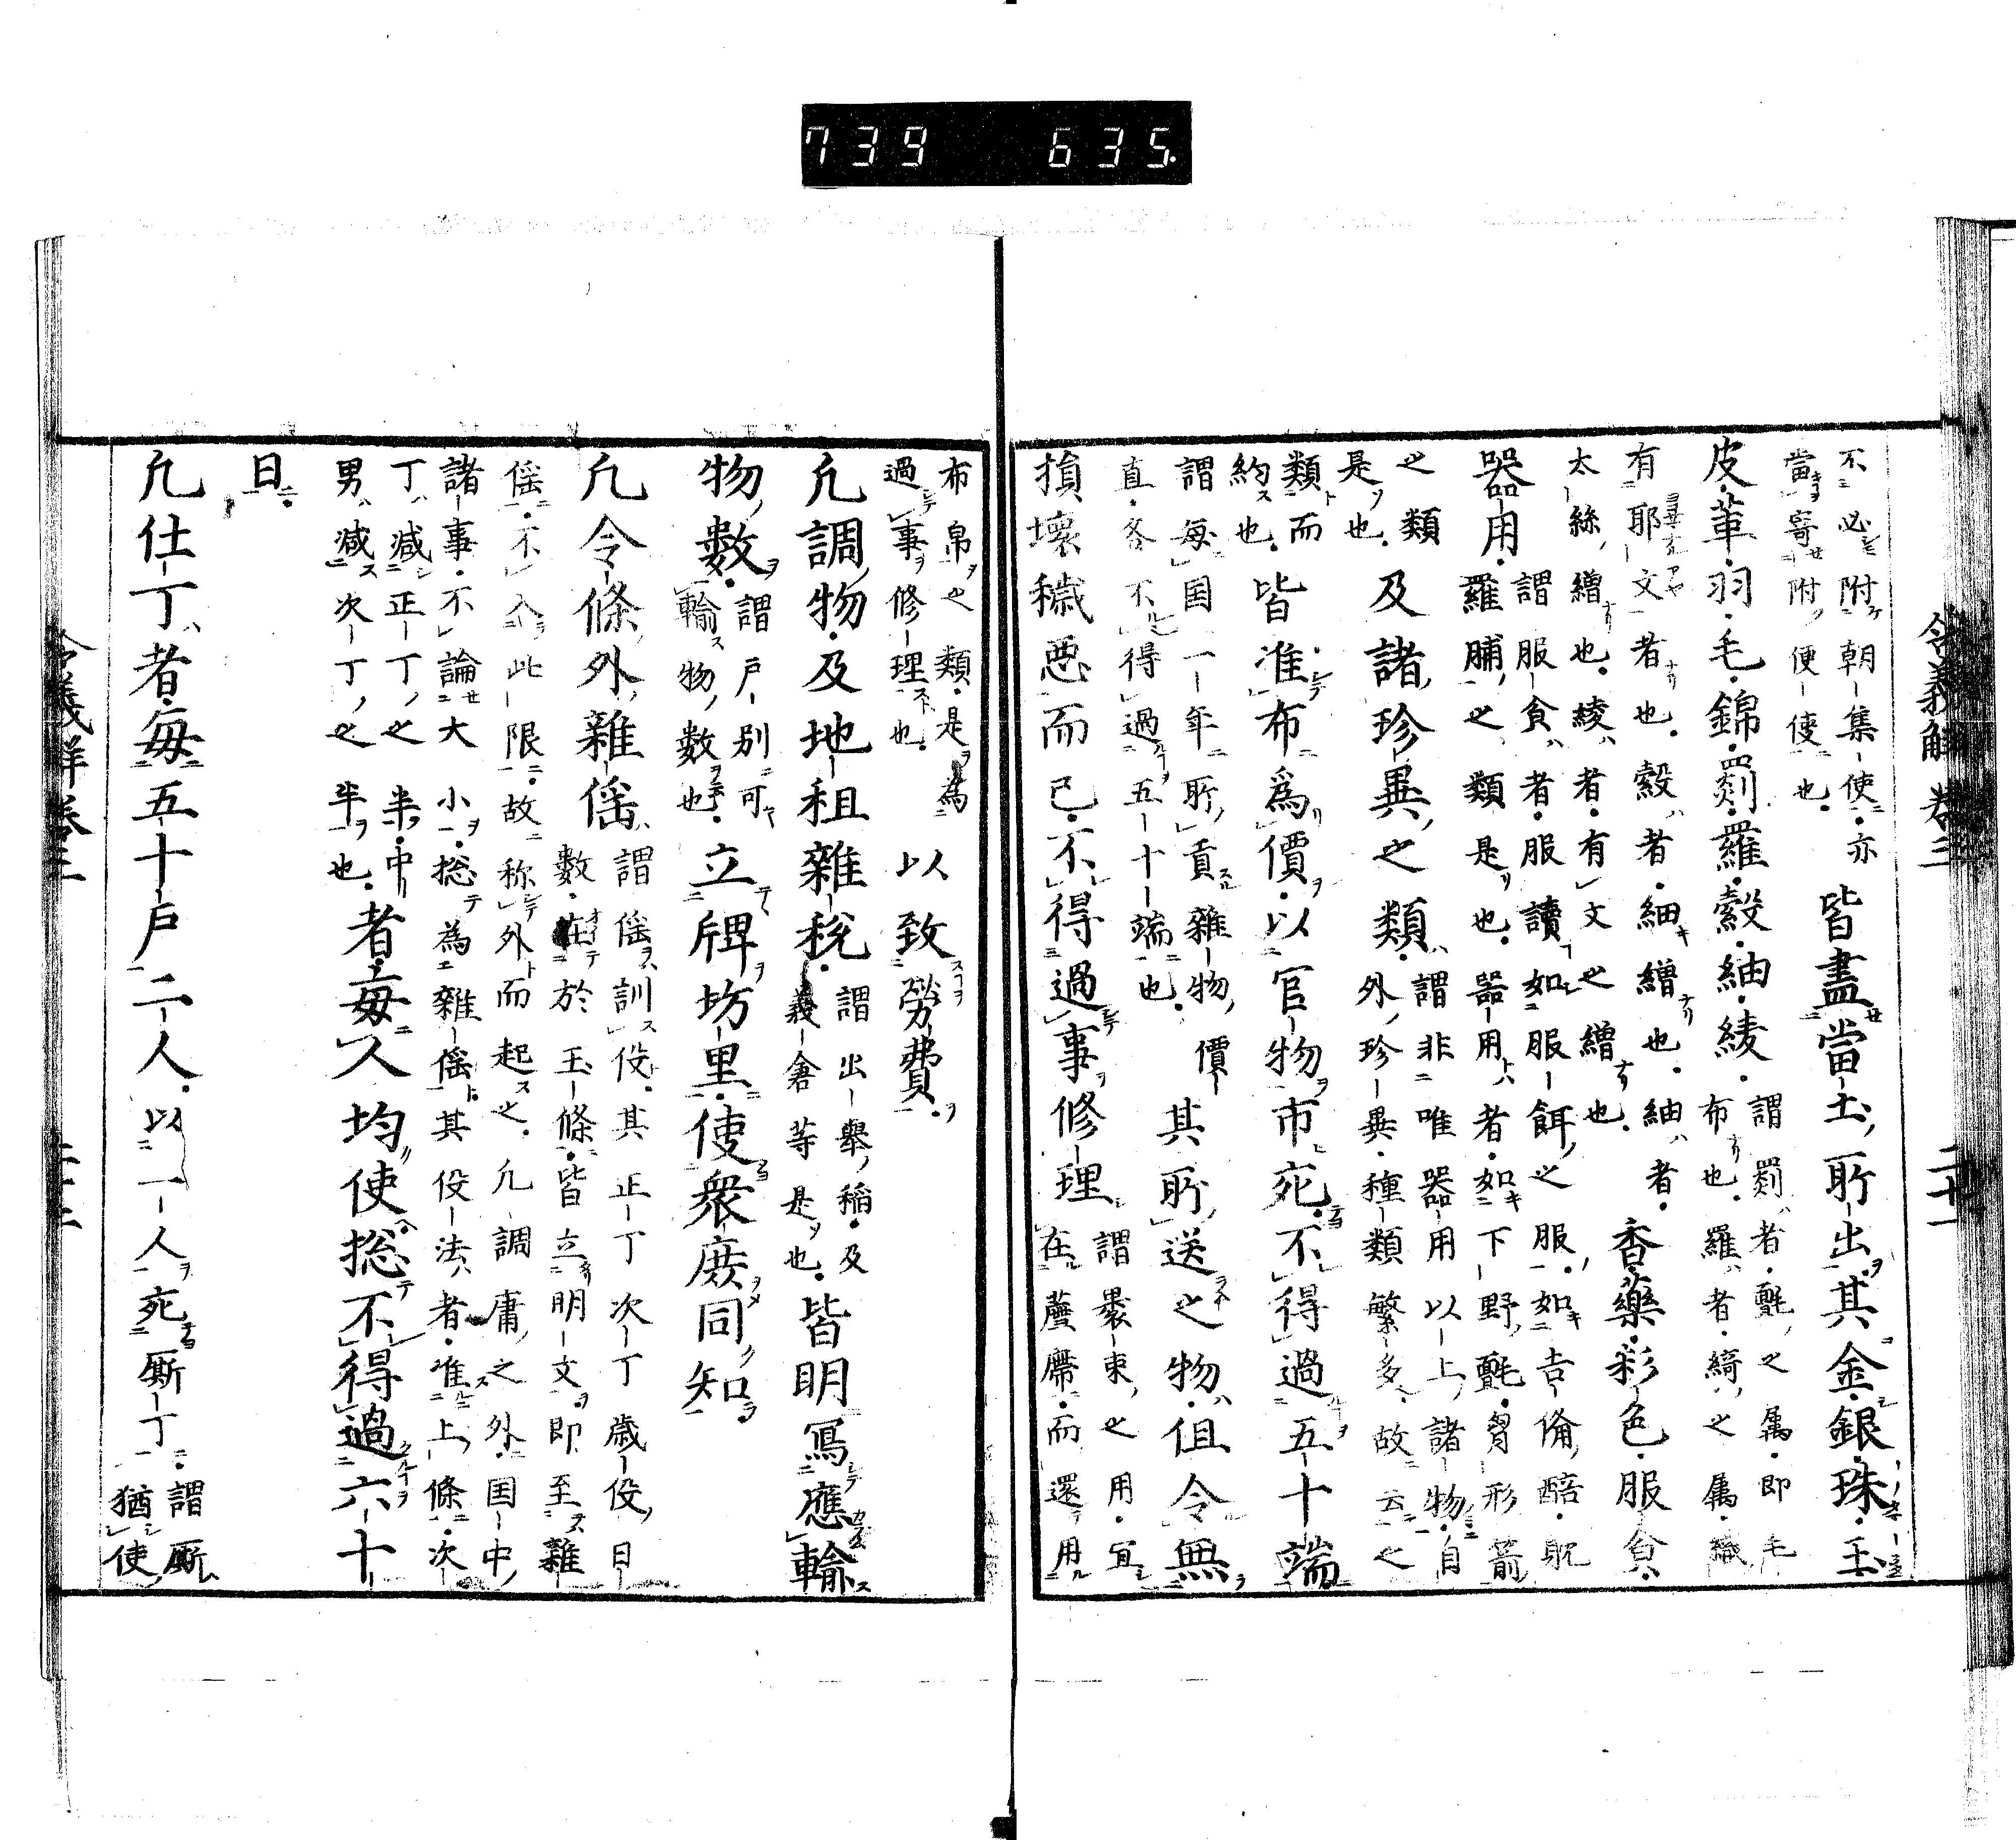 739 635
令義解 卷三 二十一
不必附朝集使亦
當寄附便使也 皆盡當土所出其金銀珠玉
皮革羽毛錦罽羅縠紬綾 謂罽者氈之属即毛
布也羅者綺之属織
有耶文者也縠者細繒也紬者
太絲繒也綾者有文之繒也 香藥彩色服食
器用 謂服食者服讀如服餌之服如吉備醅耽
羅脯之類是也器用者如下野氈胷形箭
之類
是也 及諸珍異之類 謂非唯器用以上諸物自
外珍異種類繁多故云之
類而
約也 皆准布爲價以官物市充不得過五十端
謂毎国一年所貢雜物價
直各不得過五十端也 其所送之物但令無
損壞穢惡而已不得過事修理 謂褁束之用宜
在蘆席而還用
布帛之類是為
過事修理也 以致勞費
凡調物及地租雜税 謂出舉稲及
義倉等是也 皆明寫應輸
物數 謂戸別可
輸物數也 立牌坊里使衆庻同知
凡令條外雜徭 謂徭訓役其正丁次丁歳役日
數在於玉條皆立明文即至雜
徭不入此限故称外而起之凡調庸之外国中
諸事不論大小捴為雜徭其役法者准上條次
丁減正丁之半中
男減次丁之半也 者毎人均使捴不得過六十
日
凡仕丁者毎五十戸二人以一人充厮丁 謂厮
猶使